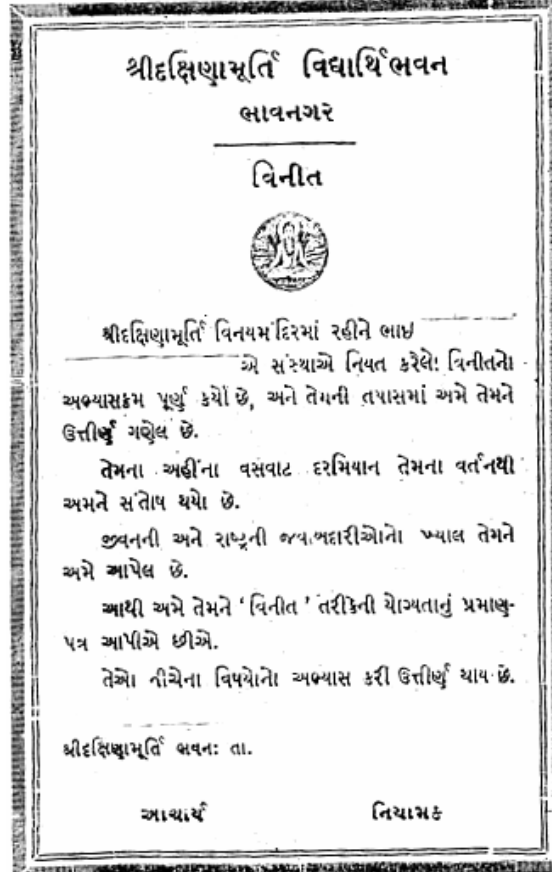 શ્રીદક્ષિણામૂર્તિ વિદ્યાર્થિભવન
ભાવનગર
વિનીત
શ્રીદક્ષિણામૂર્તિ વિનયમંદિરમાં રહીને ભાઇ
એ સંસ્થાએ નિયત કરેલો વિનીતનો
અભ્યાસક્રમ પૂર્ણ કર્યો છે, અને તેમની તપાસમાં અમે તેમને
ઉત્તીર્ણ ગણેલ છે.
તેમના અહીંના વસવાટ દરમિયાન તેમના વર્તનથી
અમને સંતોષ થયો છે.
જીવનની અને રાષ્ટ્રની જવાબદારીઓનો ખ્યાલ તેમને
અમે આપેલ છે.
આથી અમે તેમને ‘ વિનીત ’ તરીકેની યોગ્યતાનું પ્રમાણ-
પત્ર આપીએ છીએ.
તેઓ નીચેના વિષયોનો અભ્યાસ કરી ઉત્તીર્ણ થાય છે.
શ્રીદક્ષિણામૂર્તિ ભવન: તા.
આચાર્ય નિયામક